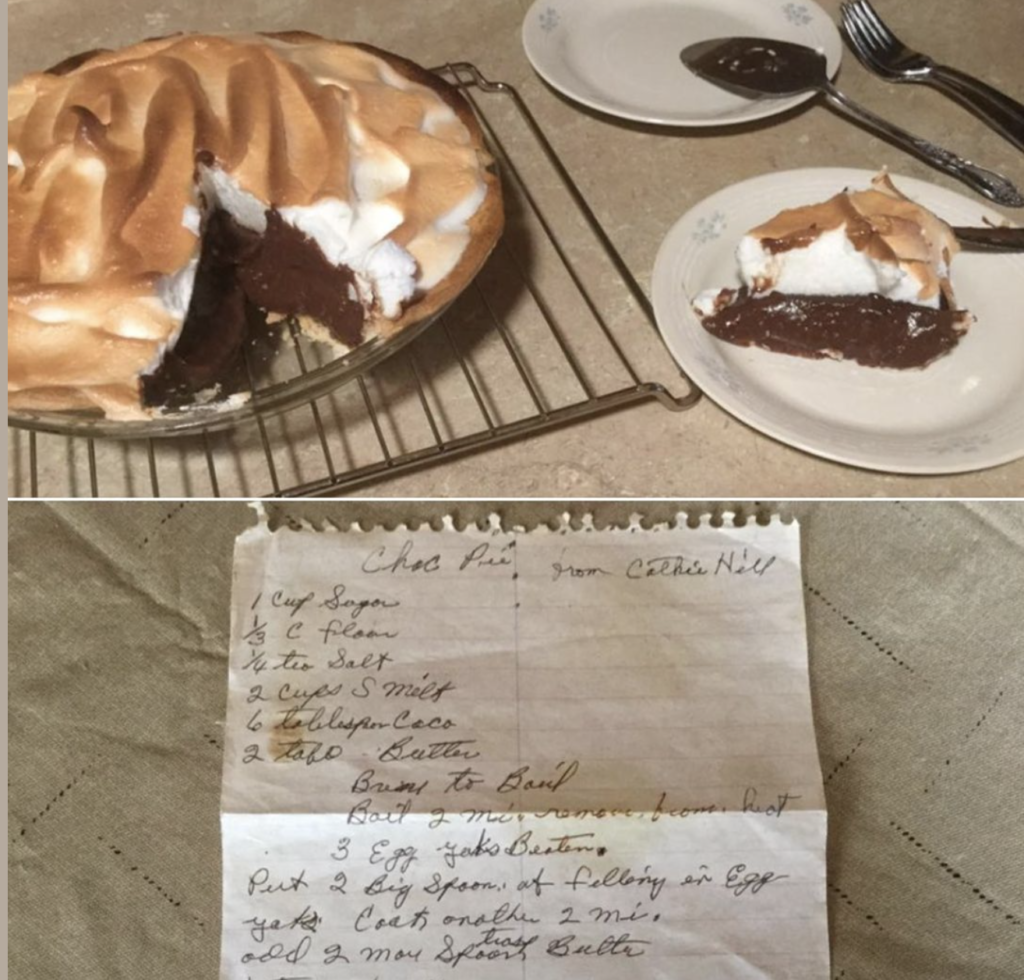 Choc Pie from Cathie Hill
1 Cup Sugar
1/3 C flour
1/4 tea Salt
2 cups S milk
6 tablespon Coco
2 tabo Butter
Bring to Boil
Boil 2 mi. remove from heat
3 Egg yaks Beaten.
Put 2 Big Spoon. of filling in Egg
yaks Cook another 2 mi.
add 2 mor Spoon Butter